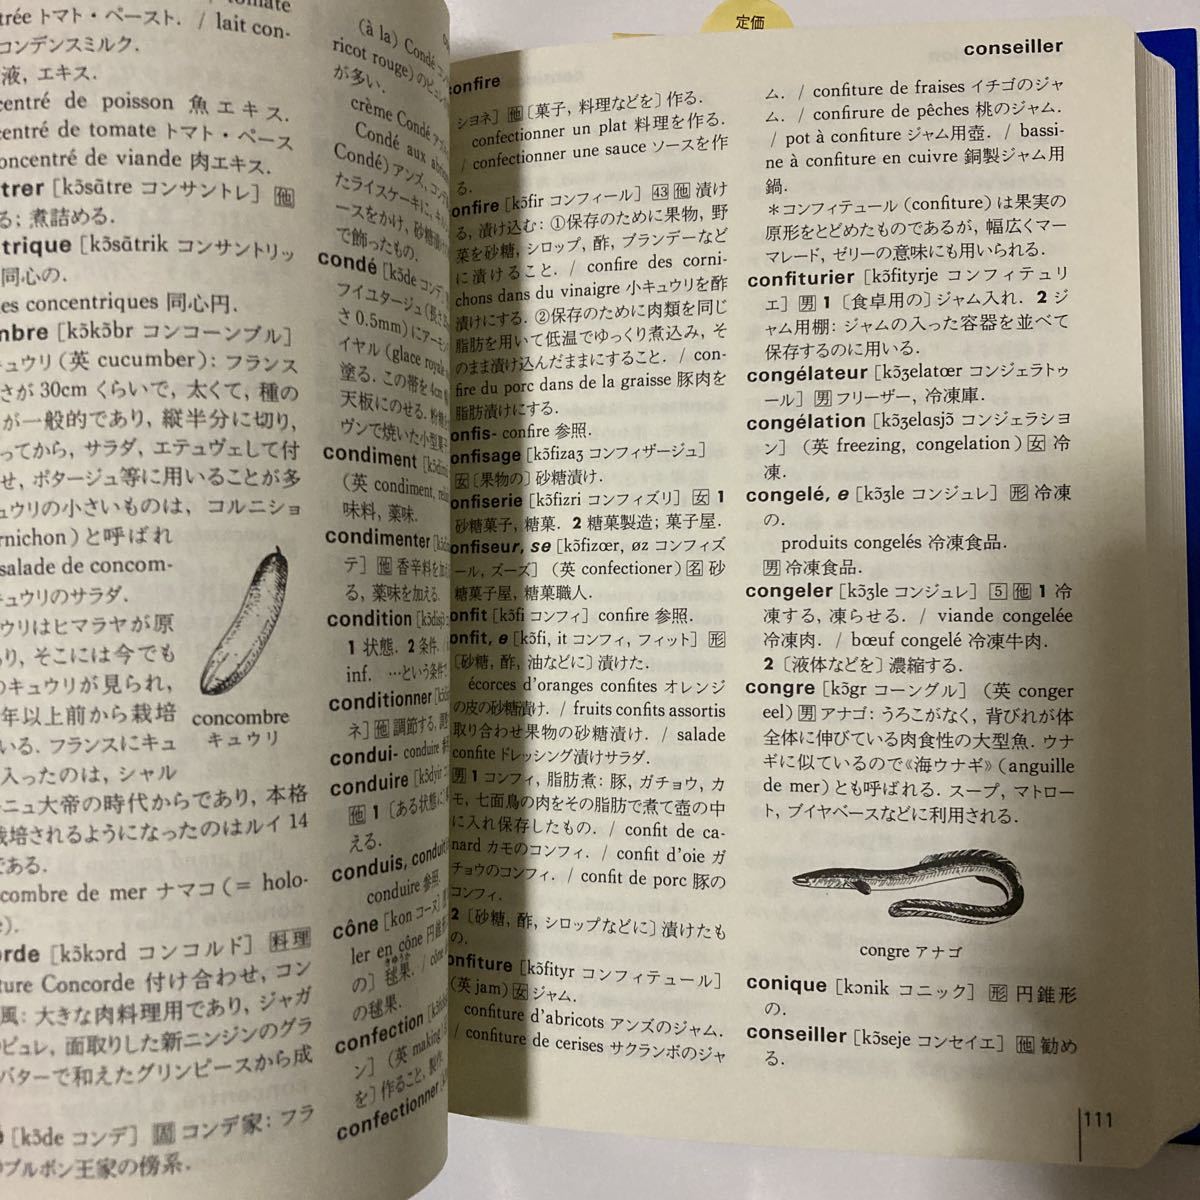 定価
tomate
trée トマト・ペースト. / lait con-
コンデンスミルク.
液, エキス.
centré de poisson 魚エキス.
centré de tomate トマト・ペース
concentré de viande 肉エキス.
trer [kɔ̃sɑ̃tre コンサントレ] 他
る; 煮詰める.
trique [kɔ̃sɑ̃trik コンサントリッ
同心の.
les concentriques 同心円.
mbre [kɔ̃kɔ̃br コンコーンブル]
キュウリ (英 cucumber): フランス
さが 30cm くらいで, 太くて, 種の
が一般的であり, 縦半分に切り,
ってから, サラダ, エテュヴェして付
せ, ポタージュ等に用いることが多
ュウリの小さいものは, コルニショ
rnichon) と呼ばれ
salade de concom-
キュウリのサラダ.
ウリはヒマラヤが原
あり, そこには今でも
のキュウリが見られ,
年以上前から栽培
いる. フランスにキュ
入ったのは, シャル
ニュ大帝の時代からであり, 本格
栽培されるようになったのはルイ 14
である.
combre de mer ナマコ (= holo-
concombre
キュウリ
orde [kɔ̃kɔrd コンコルド] 料理
ture Concorde 付け合わせ, コン
風: 大きな肉料理用であり, ジャガ
ピュレ, 面取りした新ニンジンのグラ
バターで和えたグリンピースから成
[kɔ̃de コンデ] 固 コンデ家: フラ
ブルボン王家の傍系.
(à la) Condé
ricot rouge) のピュレ
が多い.
crème Condé
Condé aux
Condé) アンズ,
たライスケーキに,
ースをかけ, 砂糖
で飾ったもの.
condé [kɔ̃de コンデ]
フイユタージュ (長さ
さ 0.5mm) にアーモン
イヤル (glace royale
塗る. この帯を 4cm
天板にのせる. 粉糖
ヴンで焼いた小型菓子
condiment
(英 condiment,
味料, 薬味.
condimenter
テ] 他 香辛料を加
る, 薬味を加える.
condition
1 状態. 2 条件.
inf. …という条件で
conditionner
ネ] 他 調節する,
condui- conduire
conduire
他 1 [ある状態に]
える.
conduis, conduit
conduire 参照.
cône [kon コーヌ]
ler en cône 円錐形
の] 毬果. / cône
の毬果.
confection
ン] (英 making)
を] 作ること, 製作
confectionner
confire
conseiller
ショネ] 他 [菓子, 料理などを] 作る.
confectionner un plat 料理を作る.
/ confectionner une sauce ソースを作
る.
onfire [kɔ̃fir コンフィール] 43 他 漬け
る, 漬け込む: ①保存のために果物, 野
菜を砂糖, シロップ, 酢, ブランデーなど
に漬けること. / confire des corni-
chons dans du vinaigre 小キュウリを酢
漬けにする. ②保存のために肉類を同じ
脂肪を用いて低温でゆっくり煮込み, そ
のまま漬け込んだままにすること. / con-
fire du porc dans de la graisse 豚肉を
脂肪漬けにする.
onfis- confire 参照.
onfisage [kɔ̃fizaʒ コンフィザージュ]
女 [果物の] 砂糖漬け.
onfiserie [kɔ̃fizri コンフィズリ] 女 1
砂糖菓子, 糖菓. 2 糖菓製造; 菓子屋.
onfiseur, se [kɔ̃fizœr, øz コンフィズ
ール, ズーズ] (英 confectioner) 名 砂
糖菓子屋, 糖菓職人.
onfit [kɔ̃fi コンフィ] confire 参照.
onfit, e [kɔ̃fi, it コンフィ, フィット] 形
[砂糖, 酢, 油などに] 漬けた.
écorces d'oranges confites オレンジ
の皮の砂糖漬け. / fruits confits assortis
取り合わせ果物の砂糖漬け. / salade
confite ドレッシング漬けサラダ.
男 1 コンフィ, 脂肪煮: 豚, ガチョウ, カ
モ, 七面鳥の肉をその脂肪で煮て壺の中
に入れ保存したもの. / confit de ca-
nard カモのコンフィ. / confit d'oie ガ
チョウのコンフィ. / confit de porc 豚の
コンフィ.
2 [砂糖, 酢, シロップなどに] 漬けたも
の.
onfiture [kɔ̃fityr コンフィテュール]
(英 jam) 女 ジャム.
confiture d'abricots アンズのジャム.
/ confiture de cerises サクランボのジャ
ム. / confiture de fraises イチゴのジャ
ム. / confirure de pêches 桃のジャム.
/ pot à confiture ジャム用壺. / bassi-
ne à confiture en cuivre 銅製ジャム用
鍋.
＊コンフィテュール (confiture) は果実の
原形をとどめたものであるが, 幅広くマー
マレード, ゼリーの意味にも用いられる.
confiturier [kɔ̃fityrje コンフィテュリ
エ] 男 1 [食卓用の] ジャム入れ. 2 ジ
ャム用棚: ジャムの入った容器を並べて
保存するのに用いる.
congélateur [kɔ̃ʒelatœr コンジェラトゥ
ール] 男 フリーザー, 冷凍庫.
congélation [kɔ̃ʒelasjɔ̃ コンジェラシヨ
ン] (英 freezing, congelation) 女 冷
凍.
congelé, e [kɔ̃ʒle コンジュレ] 形 冷凍
の.
produits congelés 冷凍食品.
男 冷凍食品.
congeler [kɔ̃ʒle コンジュレ] 5 他 1 冷
凍する, 凍らせる. / viande congelée
冷凍肉. / bœuf congelé 冷凍牛肉.
2 [液体などを] 濃縮する.
congre [kɔ̃gr コーングル] (英 conger
eel) 男 アナゴ: うろこがなく, 背びれが体
全体に伸びている肉食性の大型魚. ウナ
ギに似ているので《海ウナギ》(anguille
de mer) とも呼ばれる. スープ, マトロー
ト, ブイヤベースなどに利用される.
congre アナゴ
conique [kɔnik コニック] 形 円錐形
の.
conseiller [kɔ̃seje コンセイエ] 他 勧め
る.
111